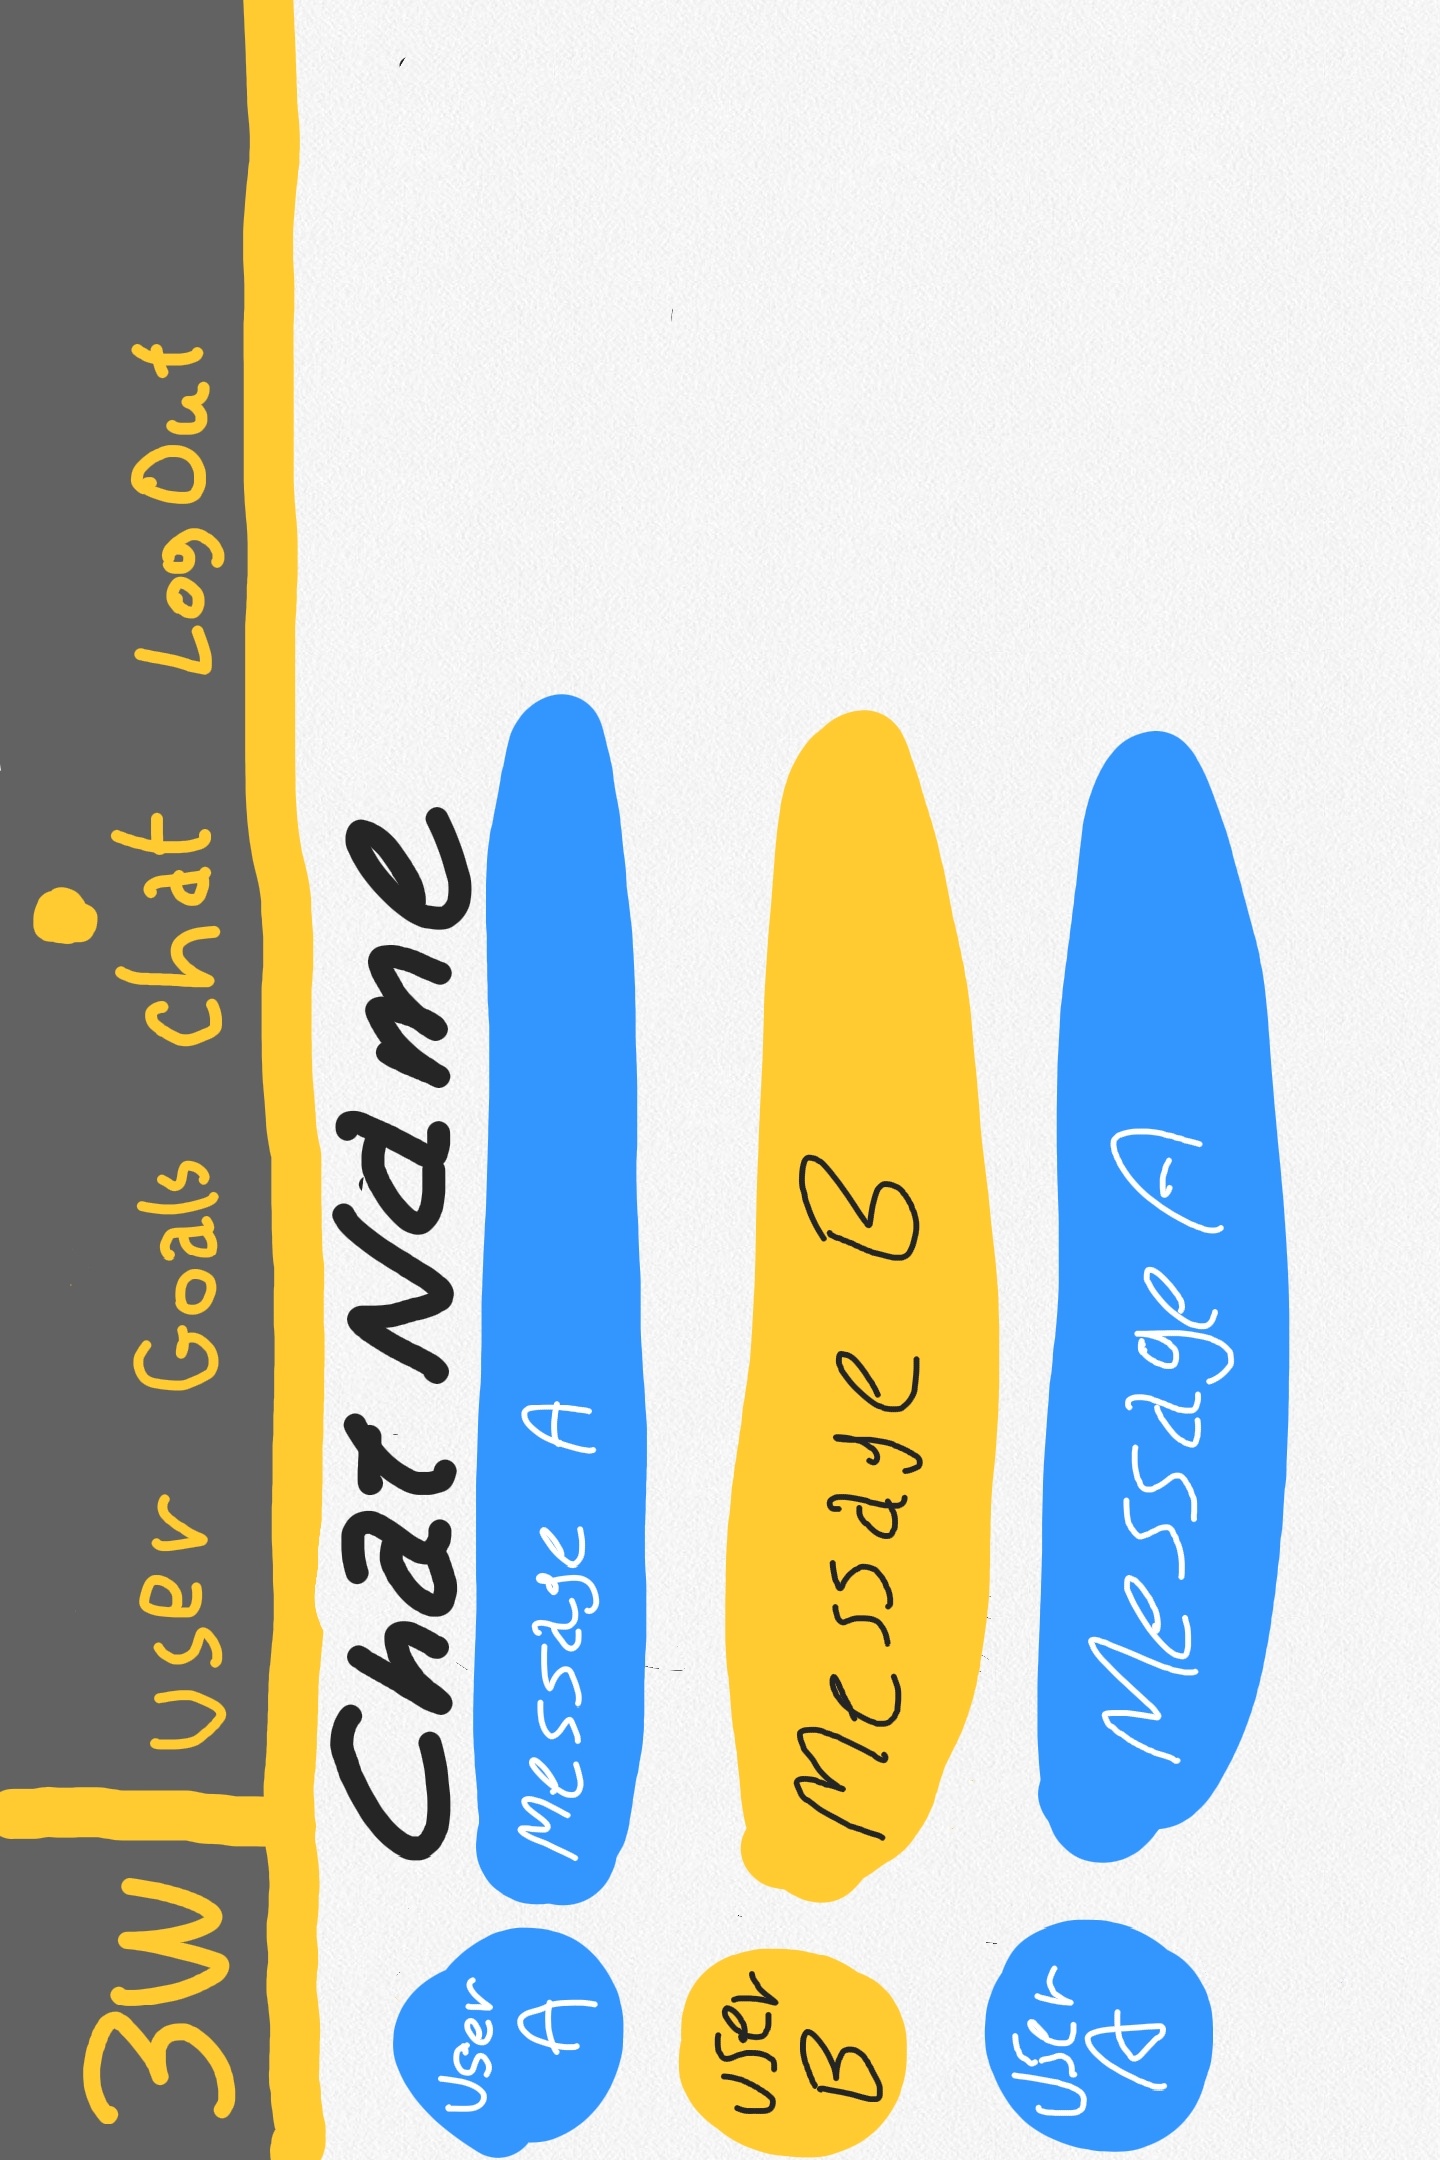 3W User Goals Chat LogOut
Chat Name
User
A
Message A
User
B
Message B
User
A
Message A